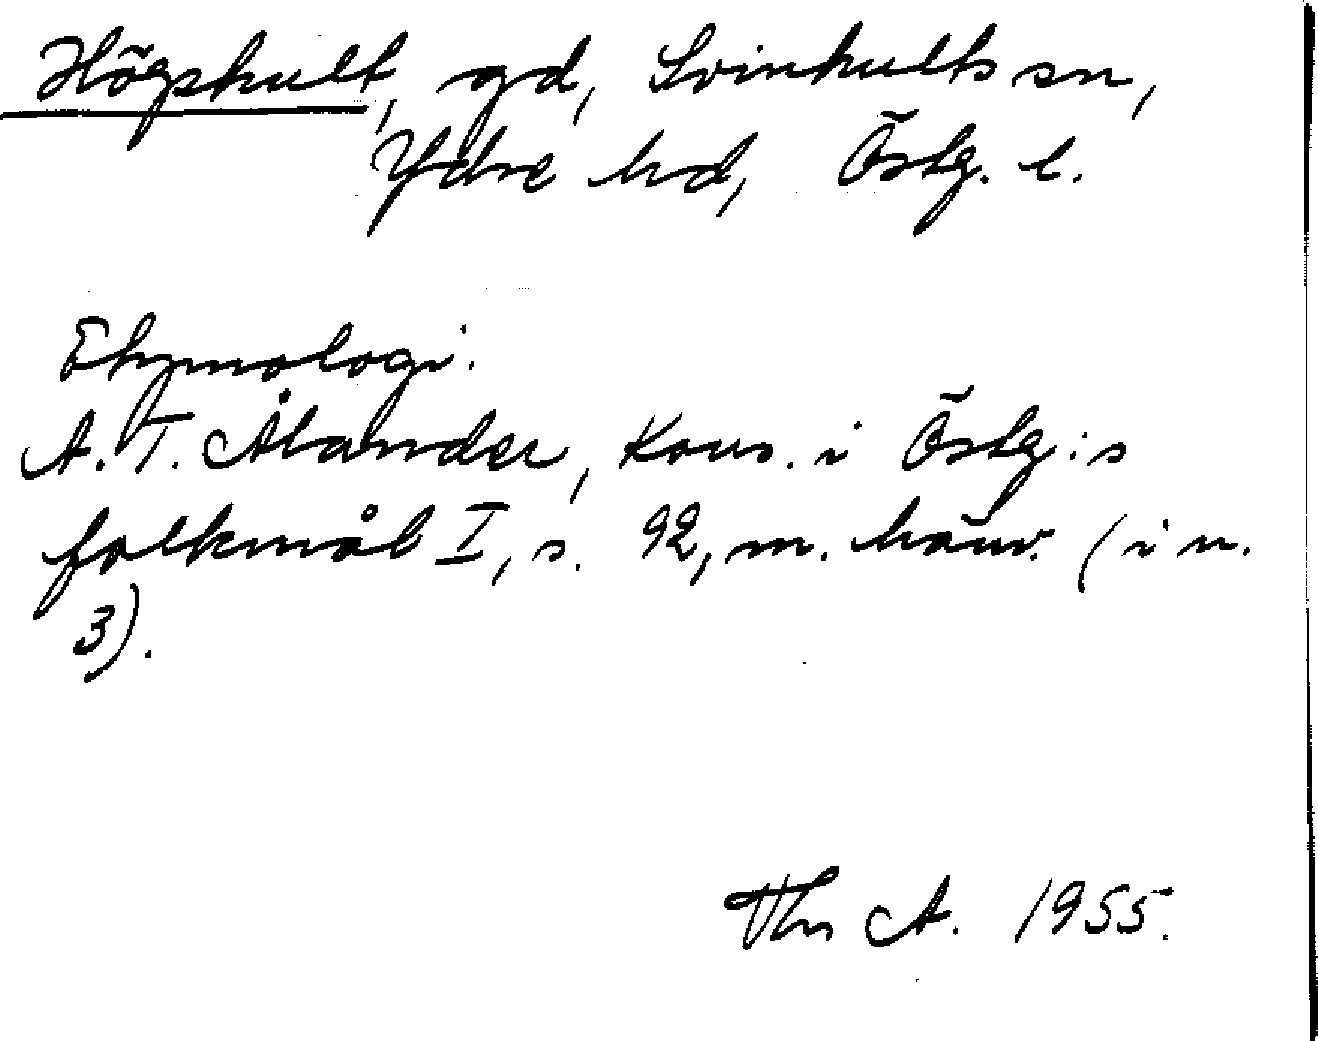 Högshult, gd, Svinhults sn,
Ydre hd, Östg. l.
Etymologi.
A. T. Ålander, Kons. i Östg:s
folkmål I, s. 92, m. hänv. (i n.
3).
Ths A. 1955.